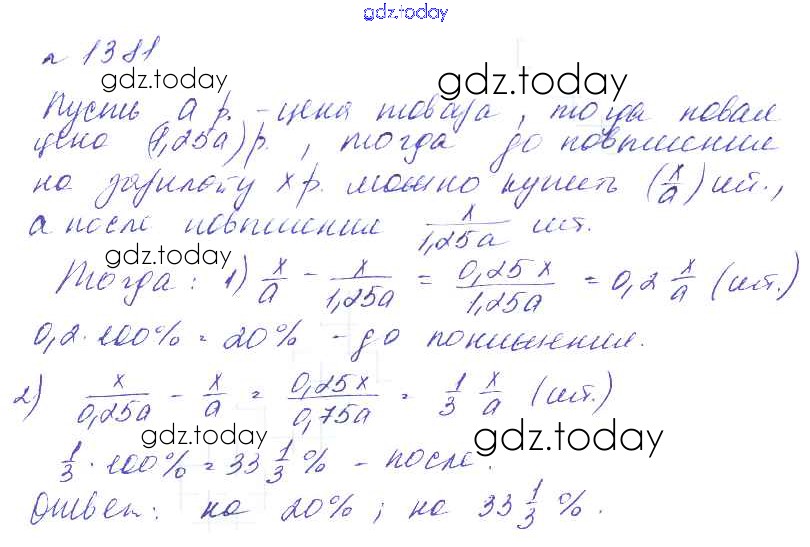 gdz.today
№ 1381
gdz.today
gdz.today
Пусть a р. - цена товара, тогда новая
цена (1,25a) р., тогда до повышения
на зарплату x р. можно купить (x/a) шт.,
а после повышения x/1,25a шт.
gdz.today
gdz.today
Тогда: 1) x/a - x/1,25a = 0,25x/1,25a = 0,2 x/a (шт.)
0,2·100% = 20% - до понижения.
2) x/0,25a - x/a = 0,25x/0,75a = 1/3 x/a (шт.)
gdz.today
gdz.today
1/3 · 100% = 33 1/3 % - после.
Ответ: на 20%; на 33 1/3 %.